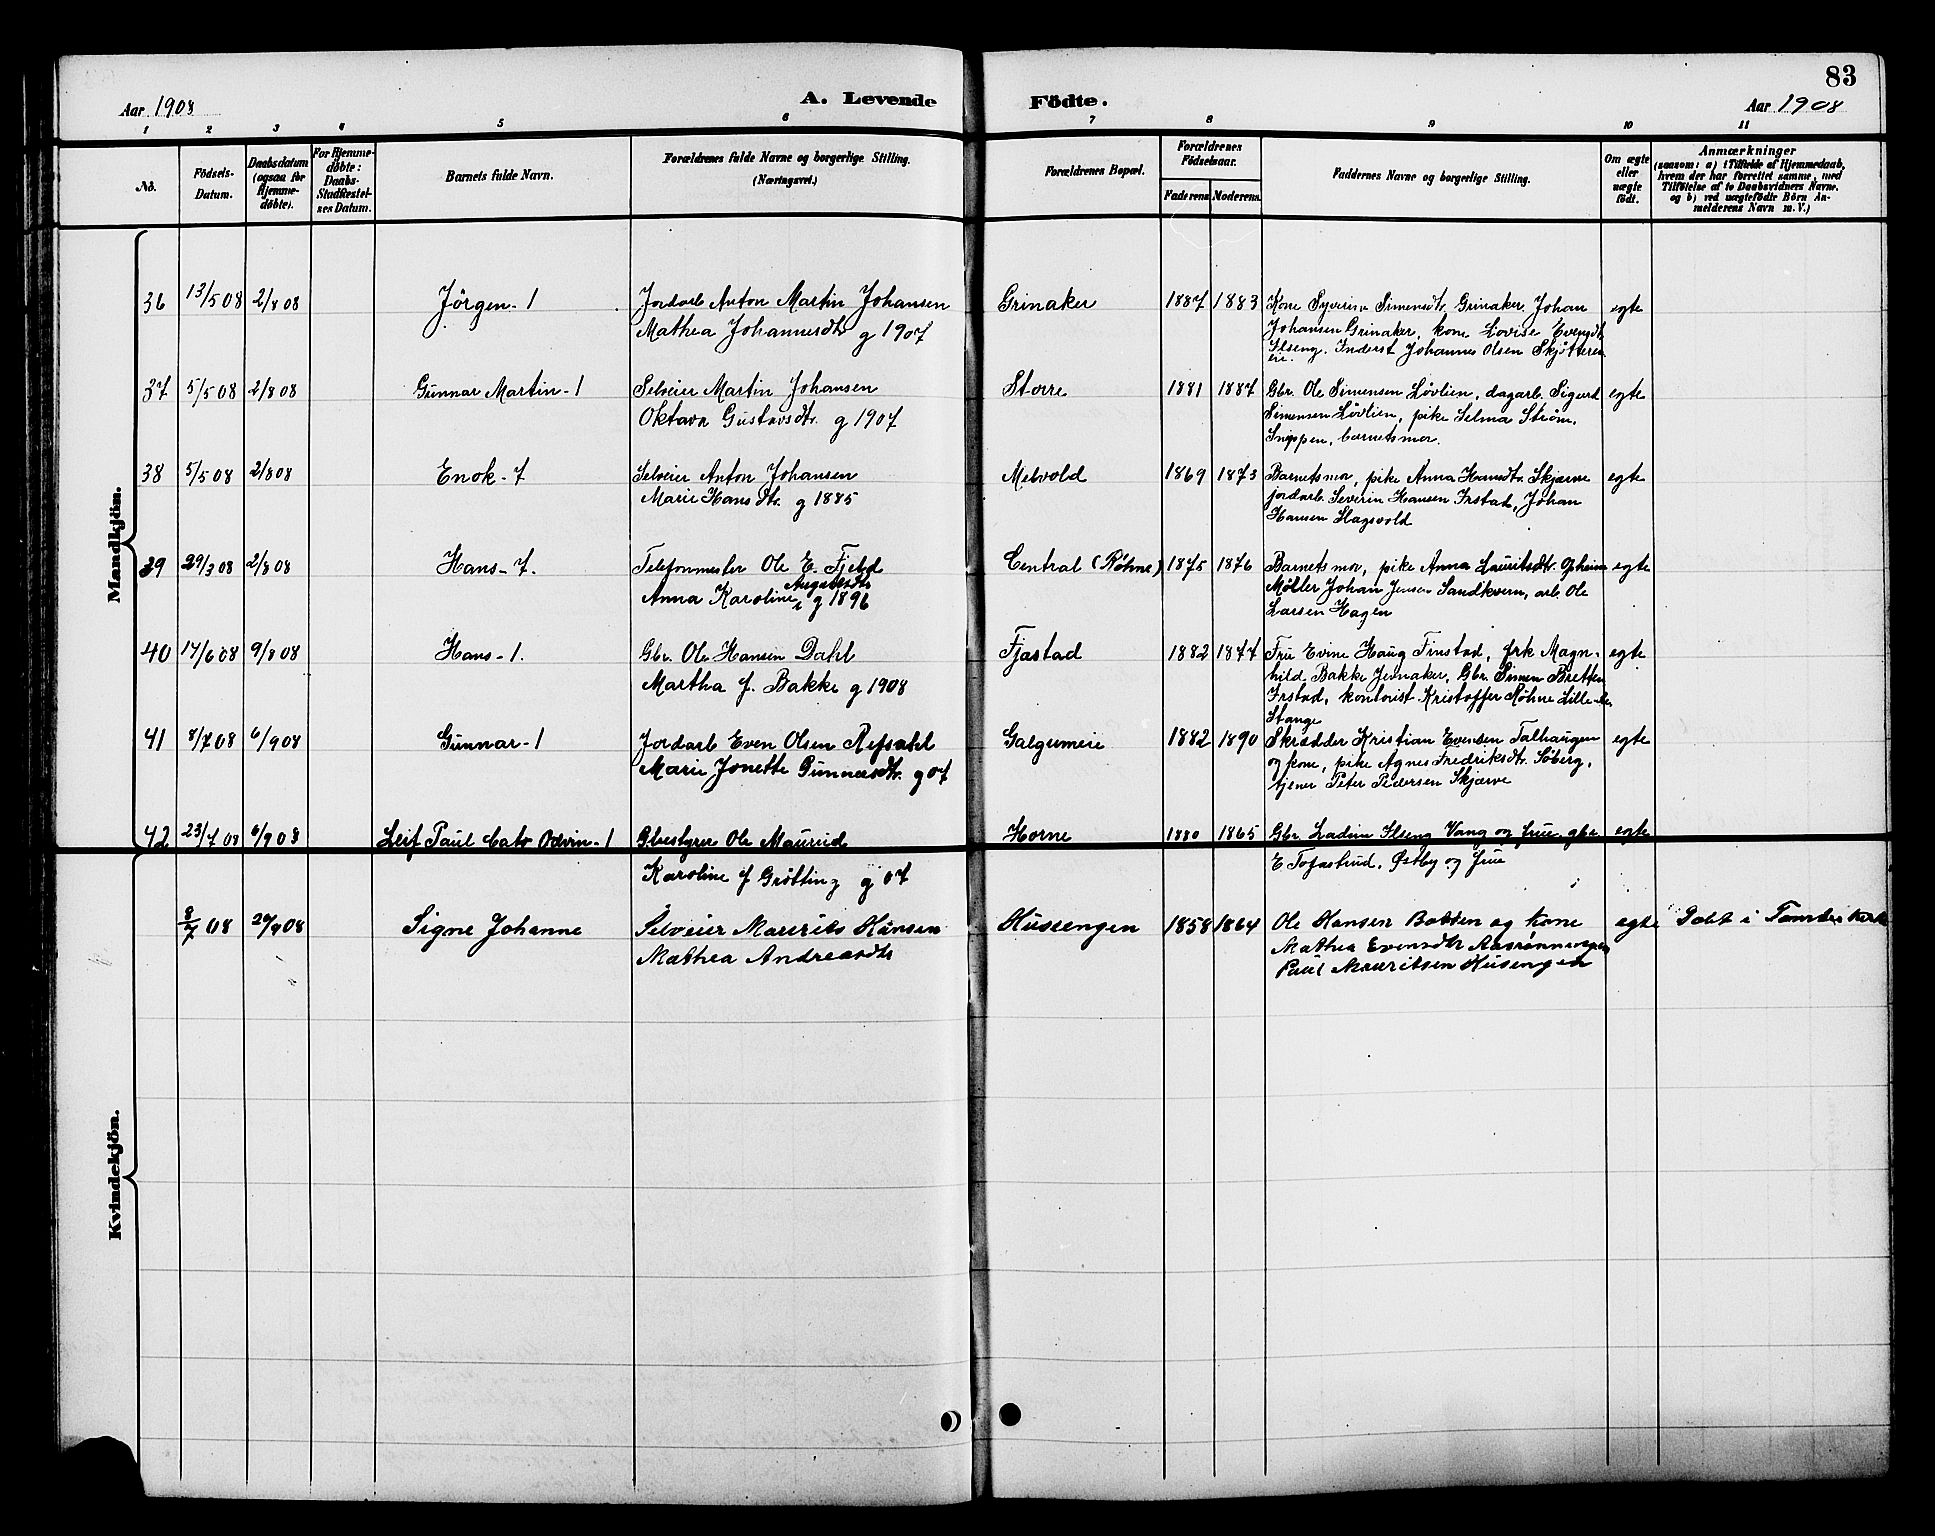 83
Aar 1908
A. Levende
Födte.
Aar 1908
1 2 3 4 5 6 7 8 9 10 11
No.
Födsels-
Datum.
Daabsdatum
(ogsaa for
Hjemme-
döbte).
For Hjemme-
döbte:
Daabs-
Stadfæstel-
ses Datum.
Barnets fulde Navn.
Forældrenes fulde Navne og borgerlige Stilling.
(Næringsvei.)
Forældrenes Bopæl.
Forældrenes
Födselsaar.
Faderens Moderens
Faddernes Navne og borgerlige Stilling.
Om ægte
eller
uægte
födt.
Anmærkninger
(saasom: a) i Tilfælde af Hjemmedaab,
hvem der har forrettet samme, med
Tilföielse af to Daabsvidners Navne,
og b) ved uægtefödte Börn An-
melderens Navn m. V.)
Mandkjön.
36 13/5 08 2/8 08 Jørgen - 1 Jordarb Anton Martin Johansen Grinaker 1887 1883 Kone Syverine Simensdt. Grinaker, Johan egte
Mathea Johannesdtr g 1907 Johansen Grinaker, kone Lovise Evensdt
Ilseng. Inderst Johannes Olsen Skjøtteren
eie.
37 5/5 08 2/8 08 Gunnar Martin - 1 Selveier Martin Johansen Storre 1881 1887 Gbr. Ole Simensen Løvlien, dagarb. Sigurd egte
Oktava Gustavsdt. g 1907 Simensen Løvlien, pike Selma Strøm,
Snippen, barnets mor.
38 5/5 08 2/8 08 Enok - 7 Selveier Anton Johansen Melvold 1869 1873 Barnets mor, pike Anna Hansdtr. Skjærve egte
Marie Hansdtr. g 1885 jordarb. Severin Hansen Frstad, Johan
Hansen Hagsvold
39 29/3 08 2/8 08 Hans - 7. Telefonmester Ole E. Fjeld Central (Røhne) 1875 1876 Barnets mor, pike Anna Lauritsdtr. Opheim egte
Anna Karoline Augustsdtr g 1896 Møller Johan Jensen Sandkvern, arb. Ole
Larsen Hagen
40 17/6 08 9/8 08 Hans - 1. Gbr. Ole Hansen Dahl Fjæstad 1882 1877 Fru Evine Haug Finstad, frk Magn- egte
Martha f. Bakke g 1908 hild Bakke Jernaker, Gbr. Simen Bretten
Frstad, kontorist Kristoffer Røhne Lille-
Stange
41 8/7 08 6/9 08 Gunnar - 1 Jordarb Even Olsen Refsahl Galgumeie 1882 1890 Skrædder Kristian Evensen Talhaugen egte
Marie Jonette Gunnarsdtr. g 07 og kone, pike Agnes Fredriksdt. Søberg,
tjener Peter Pedersen Skjærve
42 23/7 08 6/9 08 Leif Paul Cato Odvin - 1 Gbestyrer Ole Maurud Horne 1880 1865 Gbr. Ladim Ilseng Vang og frue, gbr egte
Karoline f Grøtting g 07 E Tofastrud, Østby og frue
Kvindekjön.
8/7 08 20/9 08 Signe Johanne Selveier Maurits Hansen Hussengen 1858 1864 Ole Hansen Bakken og kone egte Døbt i Tomter kirke
Mathea Andreasdtr Mathea Evensdtr
Paul Mauritsen Husengen